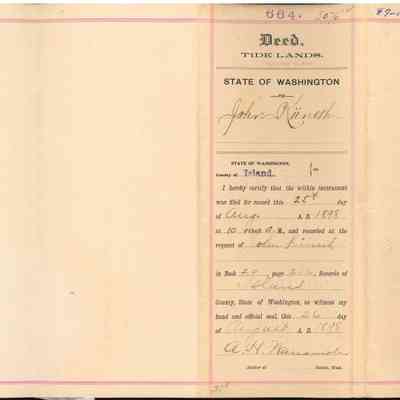 664.
Deed,
TIDE LANDS.
STATE OF WASHINGTON
TO
John
STATE OF WASHINGTON,
County of Island.
I hereby certify that the within instrument
was filed for record this 25th day
of Aug. A. D. 1898
at 10 o'clock A. M., and recorded at the
request of John
in Book page Records of
Island
County, State of Washington, as witness my
hand and official seal, this 26 day
of August A. D. 1898
A. H.
Auditor of